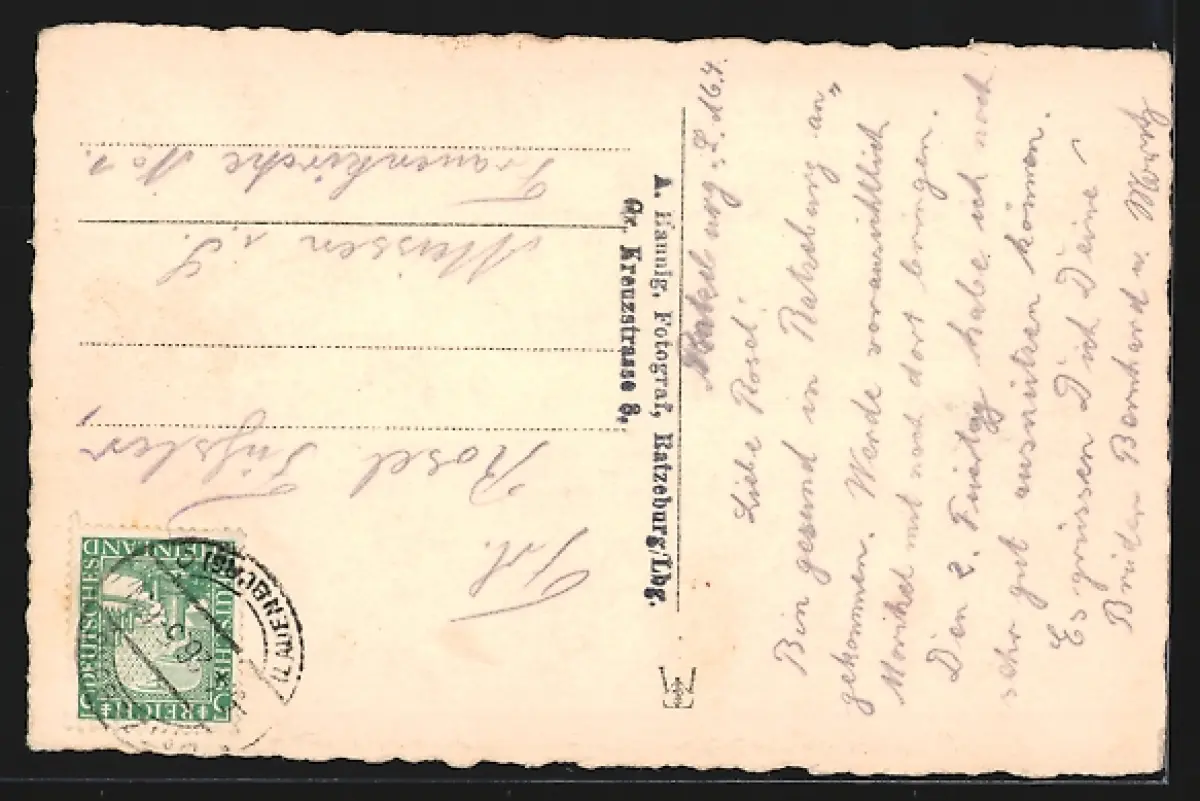 Ratzeburg i. L. d. 16.4.
Liebe Rosel!
Bin gesund in Ratzeburg an„
gekommen. Werde voraussichtlich
Morikel mit nach dort bringen.
Den 2. Feiertag habe ich noch
sehr gut ausnützen können.
Es grüssen Dich Deine
Brüder Bernhard u. Moritz
A. Hannig, Fotograf, Ratzeburg/Lbg.
Gr. Kreuzstrasse 8.
Frl.
Rosel
Meissen i. S.
Frauenkirche No 1.
DEUTSCHES REICH
RHEINLAND
5
(LAUENBURG)